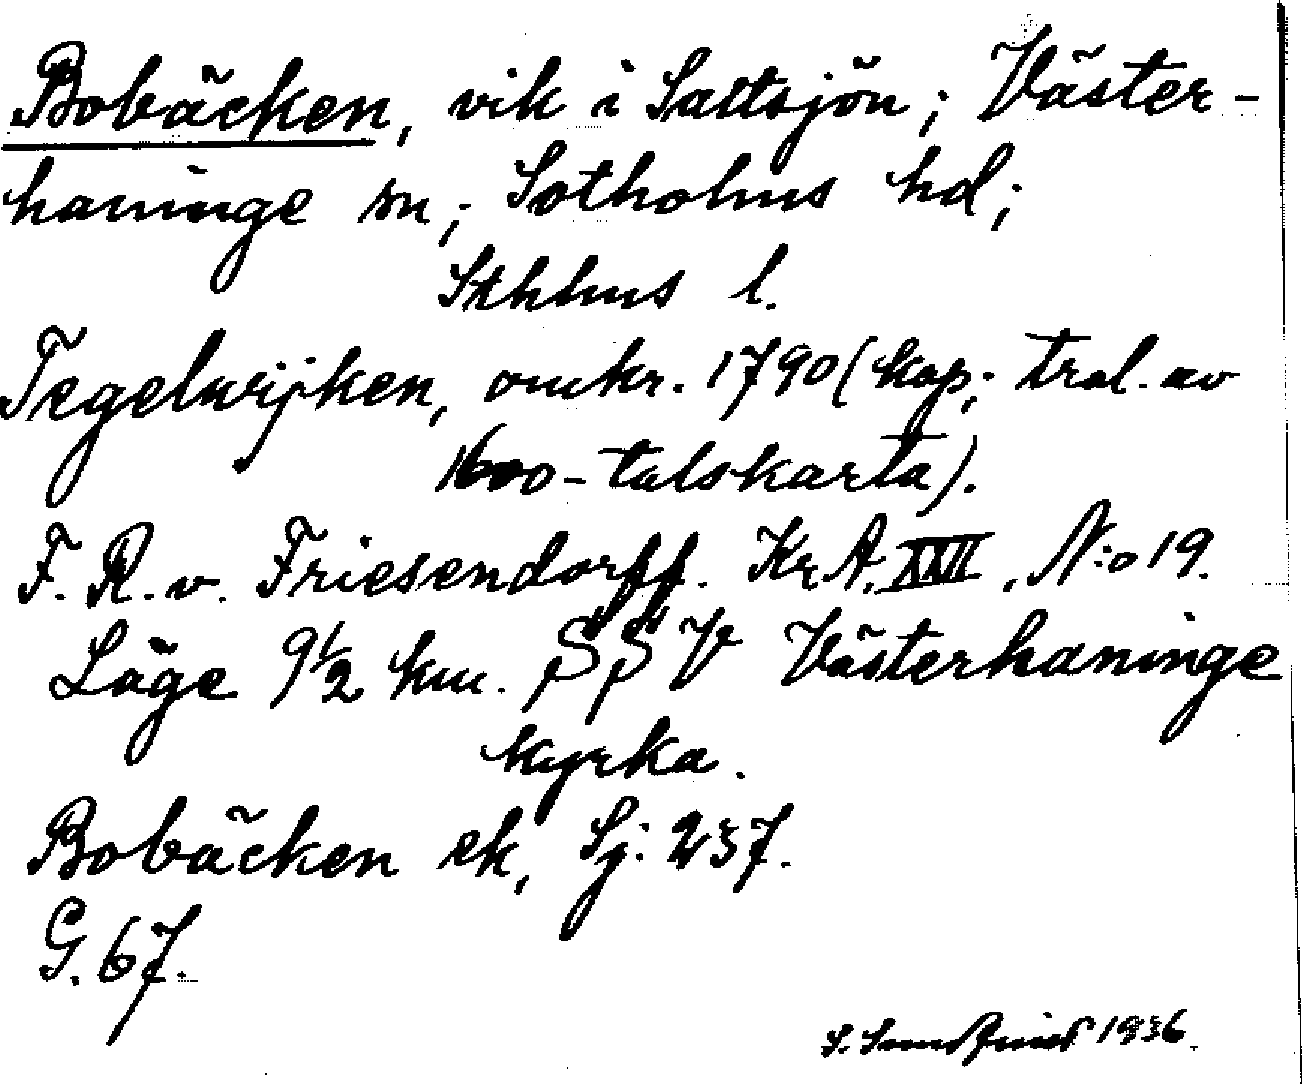 Bobäcken, vik i Saltsjön; Väster-
haninge sn; Sotholms hd;
Sthlms l.
Tegelwijken, omkr. 1790 (kop; tral. av
1600-talskarta).
F. R. v. Friesendorff. Kr. A. XVII, N:o 19.
Läge 9 1/2 km. SSV Västerhaninge
kyrka.
Bobäcken ek, Sj: 237.
G. 67.
S. 1936.